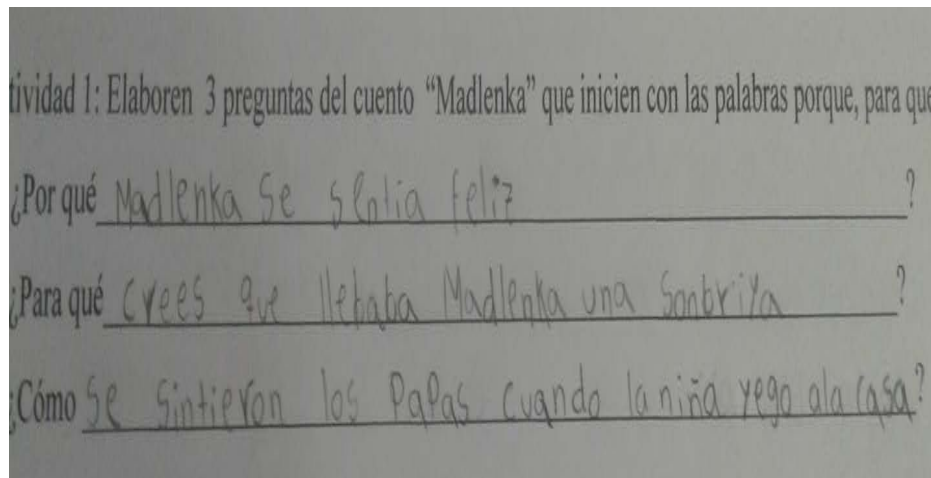 tividad 1: Elaboren 3 preguntas del cuento “Madlenka” que inicien con las palabras porque, para que
¿Por qué Madlenka Se sentia feliz ?
¿Para qué crees que llebaba Madlenka una Sonbriya ?
¿Cómo Se Sintieron los PaPas Cuando la niña yego ala casa?